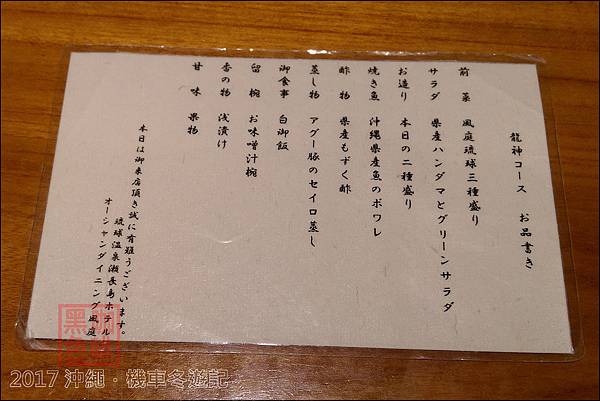 龍神コース　お品書き
前菜　風庭琉球三種盛り
サラダ　県産ハンダマとグリーンサラダ
お造り　本日の二種盛り
焼き魚　沖縄県産魚のポワレ
酢物　県産もずく酢
蒸し物　アグー豚のセイロ蒸し
御食事　白御飯
留椀　お味噌汁椀
香の物　浅漬け
甘味　果物
本日は御来店頂き誠に有難うございます。
琉球温泉瀬長島ホテル
オーシャンダイニング風庭
2017 沖繩‧機車冬遊記